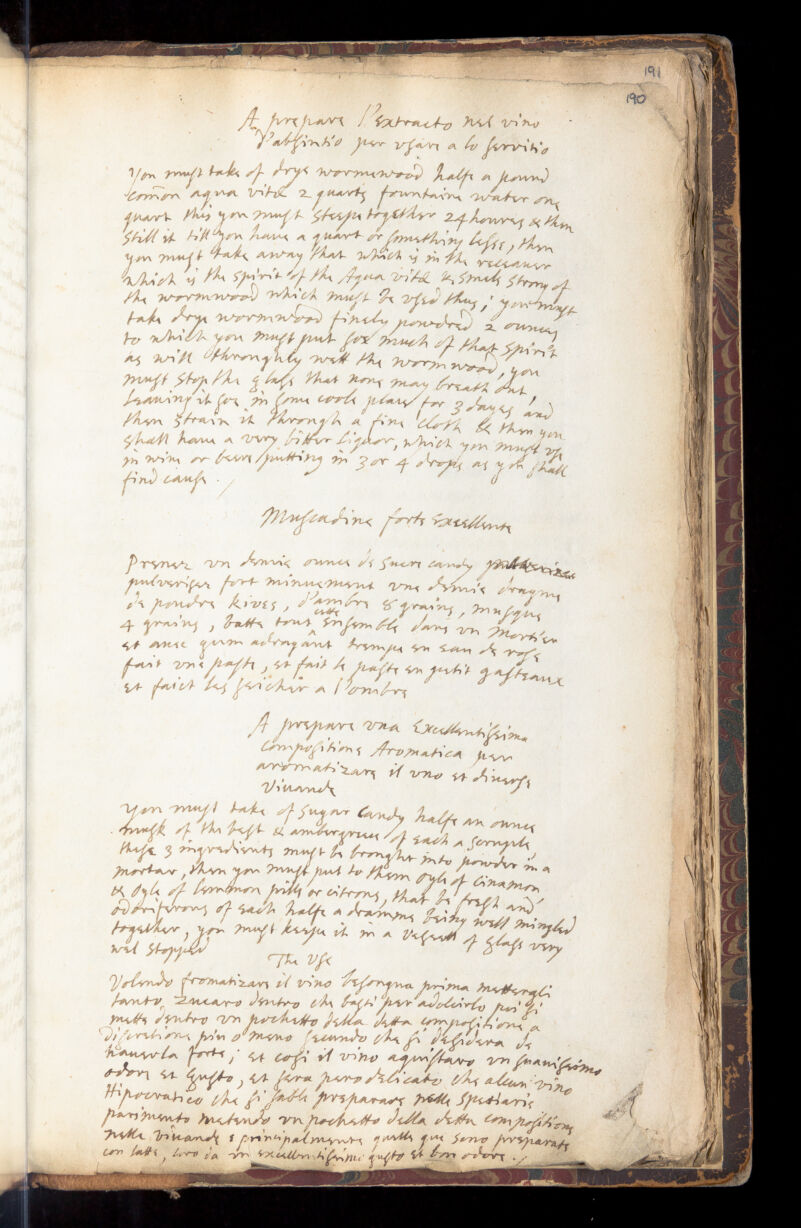 191
190
A prepare l'extracto nel vino
d'absintio per usare a lo servitio
You must take of drye wormewood halfe a pound
common aqua vitæ 2 quarts fountaine water one
quart this you must steepe together 24 houres & then
still it till you have a quart or something lesse, then
you must take away that which is in the receauer
which is the spirit of the Aqua vitæ & smels strong of
the wormwood which must be used thus; you must
take drye wormwood finely powdred 2 ounces
to which you must put soe much of that spirit
as will throughly wett the wormwood, you
must stop the glase that none may breath out,
leauing it soe in some coole place for 3 dayes and
then strain it through a fine cloth & then you
shall have a very bitter liquor, which you must use
in wine or beere putting in 3 or 4 drops as you shall
find cause.
Muscadine forte Excellente
Prenez vn demie ounce de sucre candy
pulverisez fort minuement vne demie dragme
de poudre kives, d'ambre 8 grains, musque
4 grains, batte tout cette ensemble dans vn mortier
et auec gum adragant trempe en eau de rose
fait vne paste, et fait le paste en petit gasteaux
et faict les seicher a l'ombre
A prepare vna Excellentissima
Compositione Aromatica per
aromatizare il vno et diverse
Viuande
You must take of sugar candy halfe an ounce
musk of the best & ambergreece of each a scruple,
these 3 ingredients must be brought into powder in a
mortar, then you must put to them oyle of Cinamon
& oyle of lemmon pills or citrons, that be fresh and
odoriferous of each halfe a dramme being well mingled
together, you must keepe it in a vessell of glass very
wel stopped
The Vse
Volendo aromatizare il vino besongna prima mettergli
tanto zucaro dentro che basti per adolcirlo poi si
mette dentro vn pochetto della detta compositione a
discretione piu o meno secundo che si desidera de
hauerla forte; et cosi il vino aquistaro vn suauissimo
odore et gusto, et sera pero delicato che alcun vino
Hipocratico che si sable preparare nelle Spetiarie
parimento metendo vn pochetto della detta compositione
nelle viuande e principalmente quelle que sono preparate
con latte, loro da vn excellentissimo gusto et bon odore.